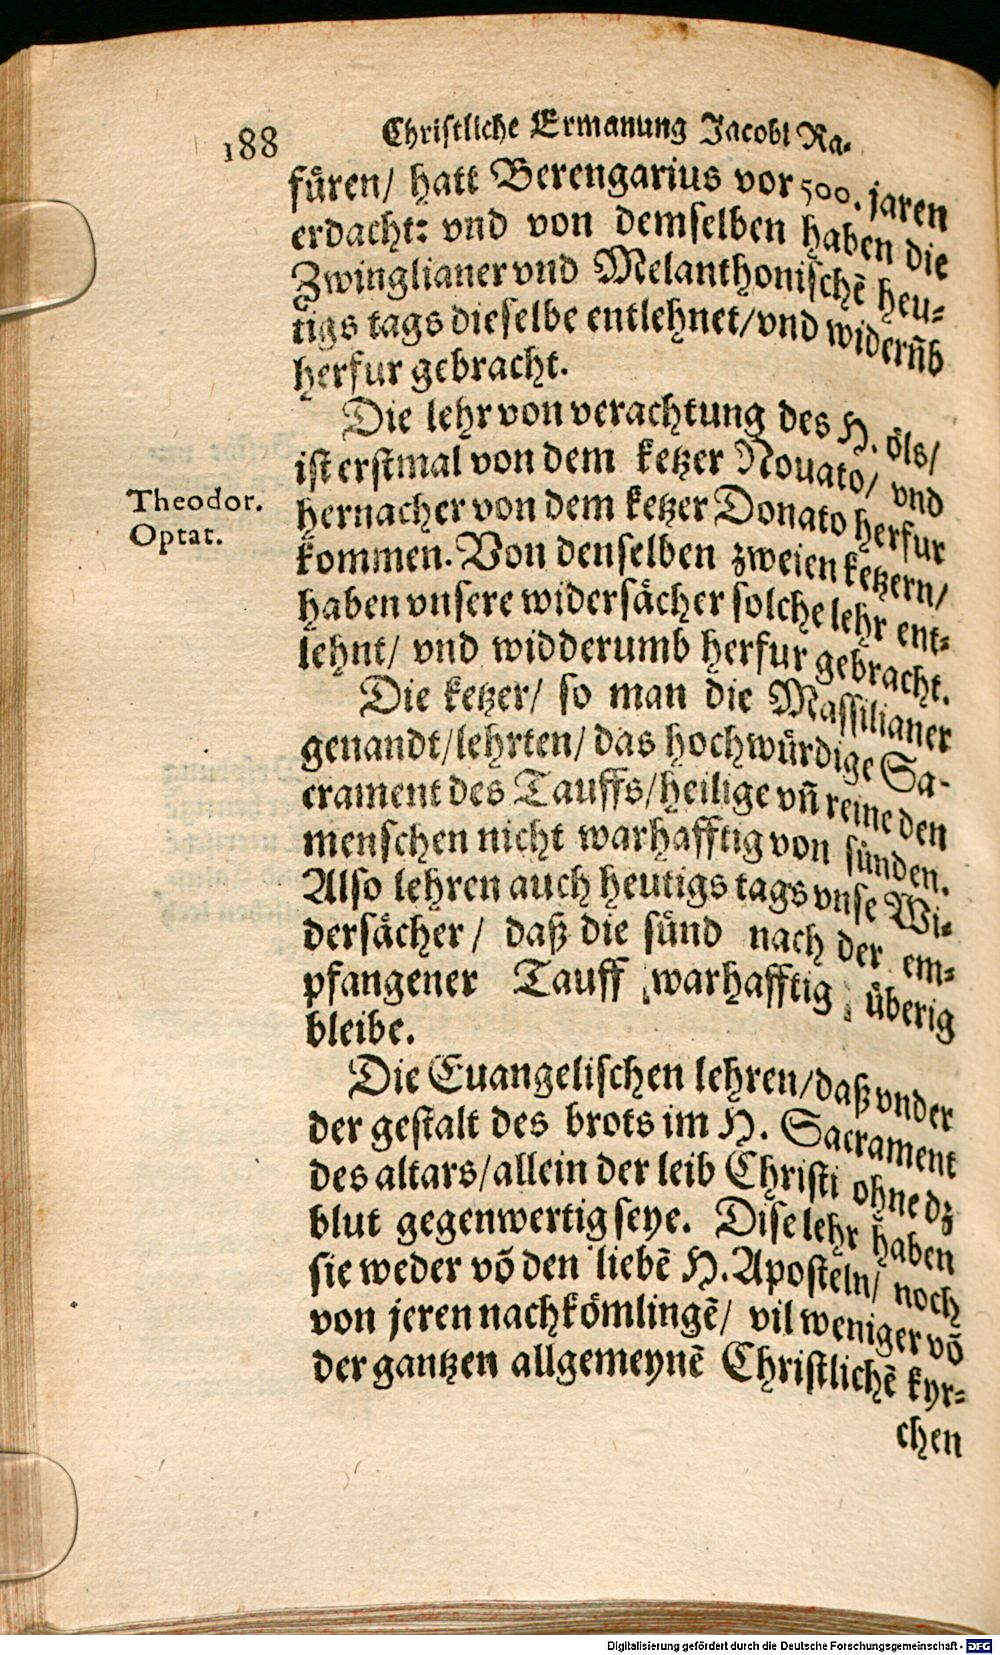 188
Christliche Ermanung Jacobi Ra-
füren/ hatt Berengarius vor 500. jaren
erdacht: vnd von demselben haben die
Zwinglianer vnd Melanthonischē heu-
tigs tags dieselbe entlehnet/vnd widerūb
herfur gebracht.
Die lehr von verachtung des H. öls/
ist erstmal von dem ketzer Nouato/ vnd
Theodor.
hernacher von dem ketzer Donato herfur
Optat.
kommen. Von denselben zweien ketzern/
haben vnsere widersächer solche lehr ent-
lehnt/ vnd widderumb herfur gebracht.
Die ketzer/ so man die Massilianer
genandt/lehrten/das hochwürdige Sa-
crament des Tauffs/heilige vñ reine den
menschen nicht warhafftig von sünden.
Also lehren auch heutigs tags vnse Wi-
dersächer/ daß die sünd nach der em-
pfangener Tauff warhafftig überig
bleibe.
Die Euangelischen lehren/daß vnder
der gestalt des brots im H. Sacrament
des altars/allein der leib Christi ohne dz
blut gegenwertig seye. Dise lehr haben
sie weder võ den liebē H. Aposteln/ noch
von jeren nachkömlingē/ vil weniger võ
der gantzen allgemeynē Christlichē kyr-
chen
Digitalisierung gefördert durch die Deutsche Forschungsgemeinschaft - DFG